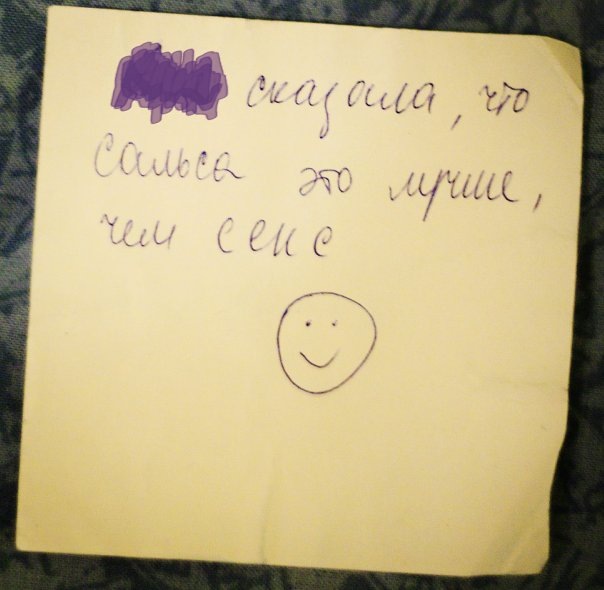 сказала, что
Сальса это лучше,
чем секс